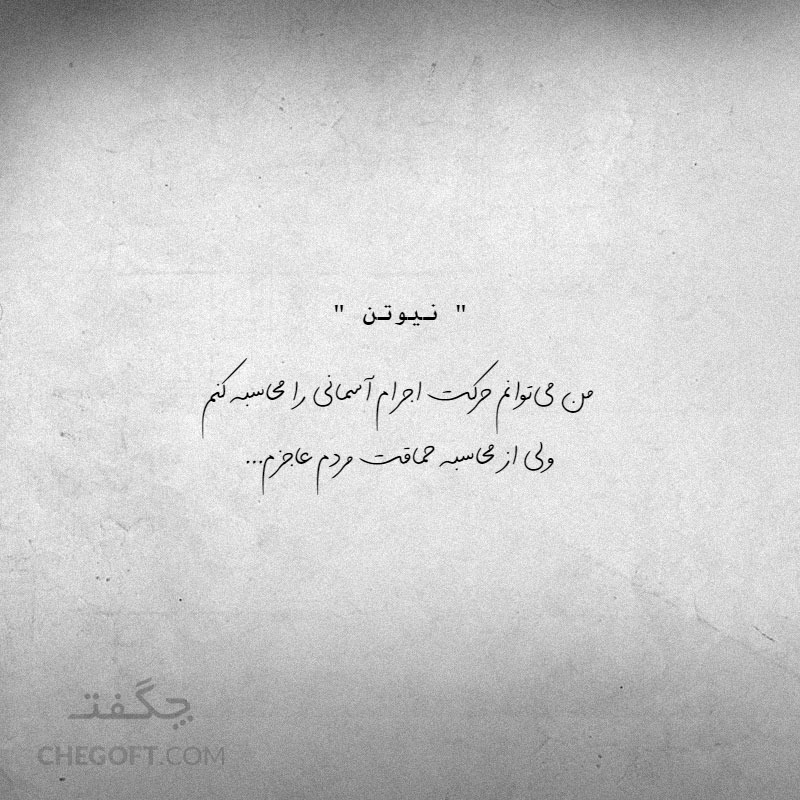 " نیوتن "
من می‌توانم حرکت اجرام آسمانی را محاسبه کنم
ولی از محاسبه حماقت مردم عاجزم...
چگفت
CHEGOFT.COM